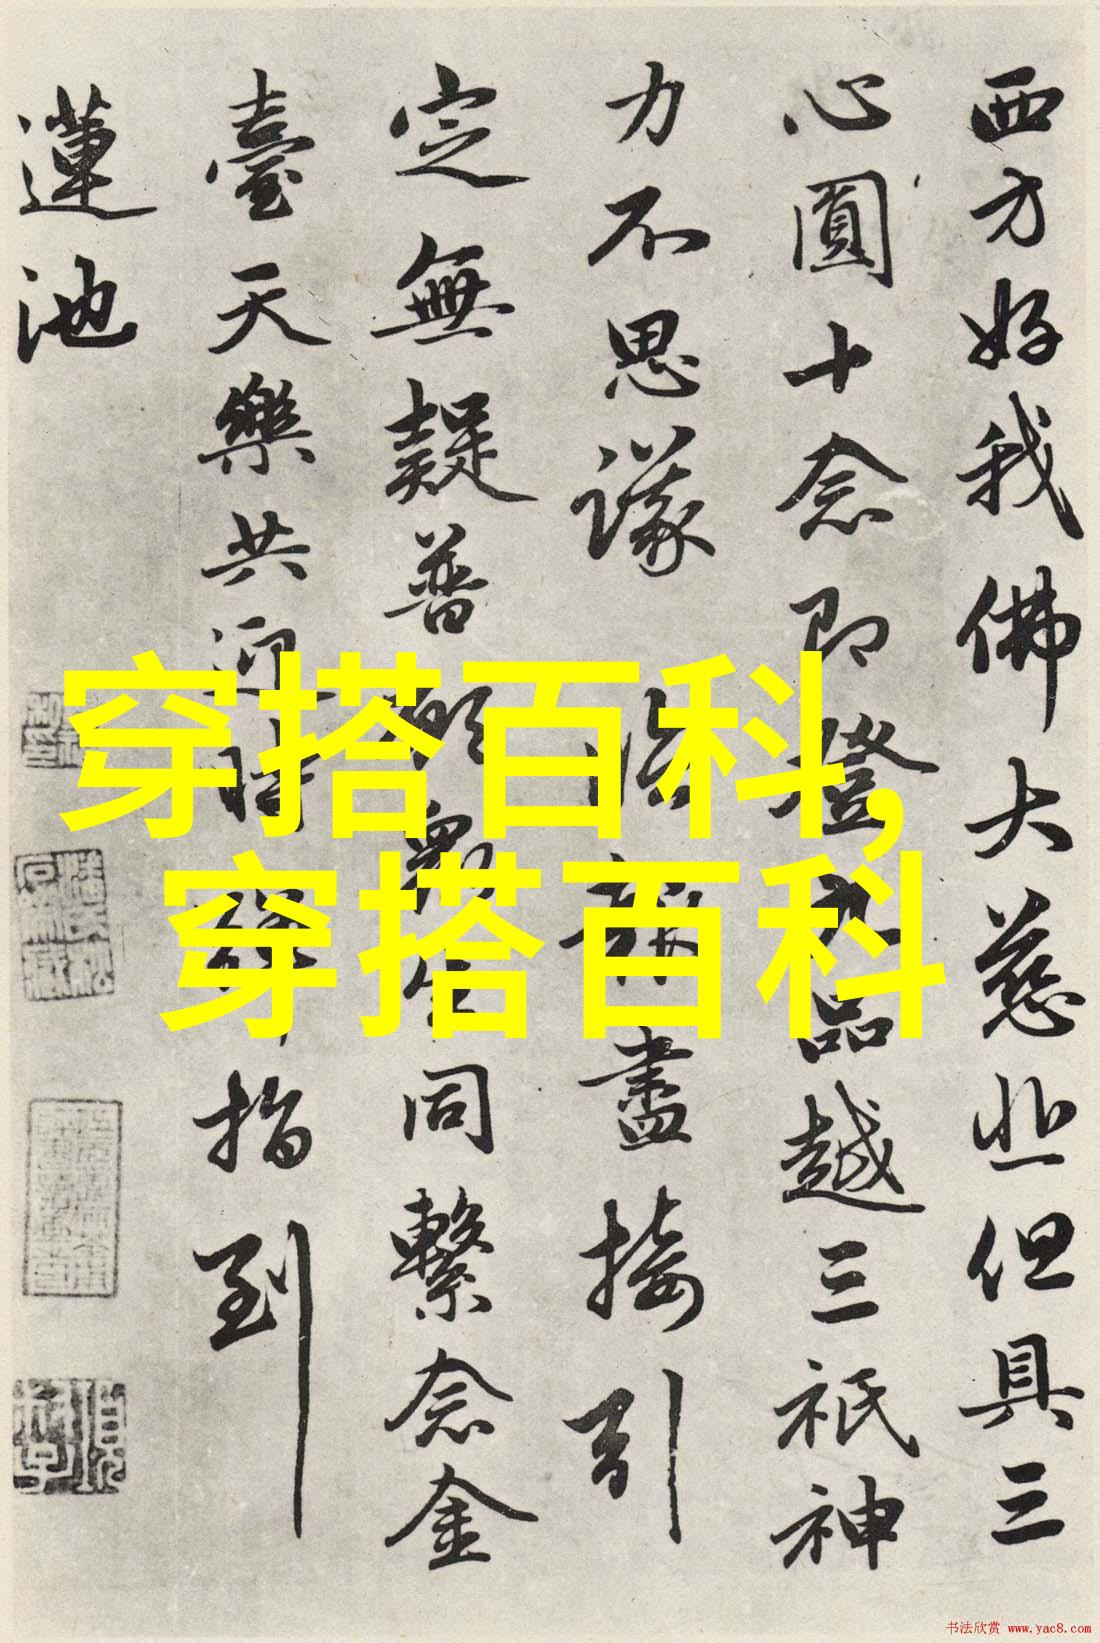 西方好我佛大慈悲但具三
心圓十念即登九品越三祇神
力不思議 接引
定無疑普願眾生同繫念金
臺天樂共迎時彈指到
蓮池
穿搭百科,
穿搭百科
书法欣赏 www.yac8.com